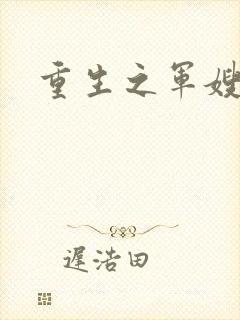 重生之军嫂
遲浩田